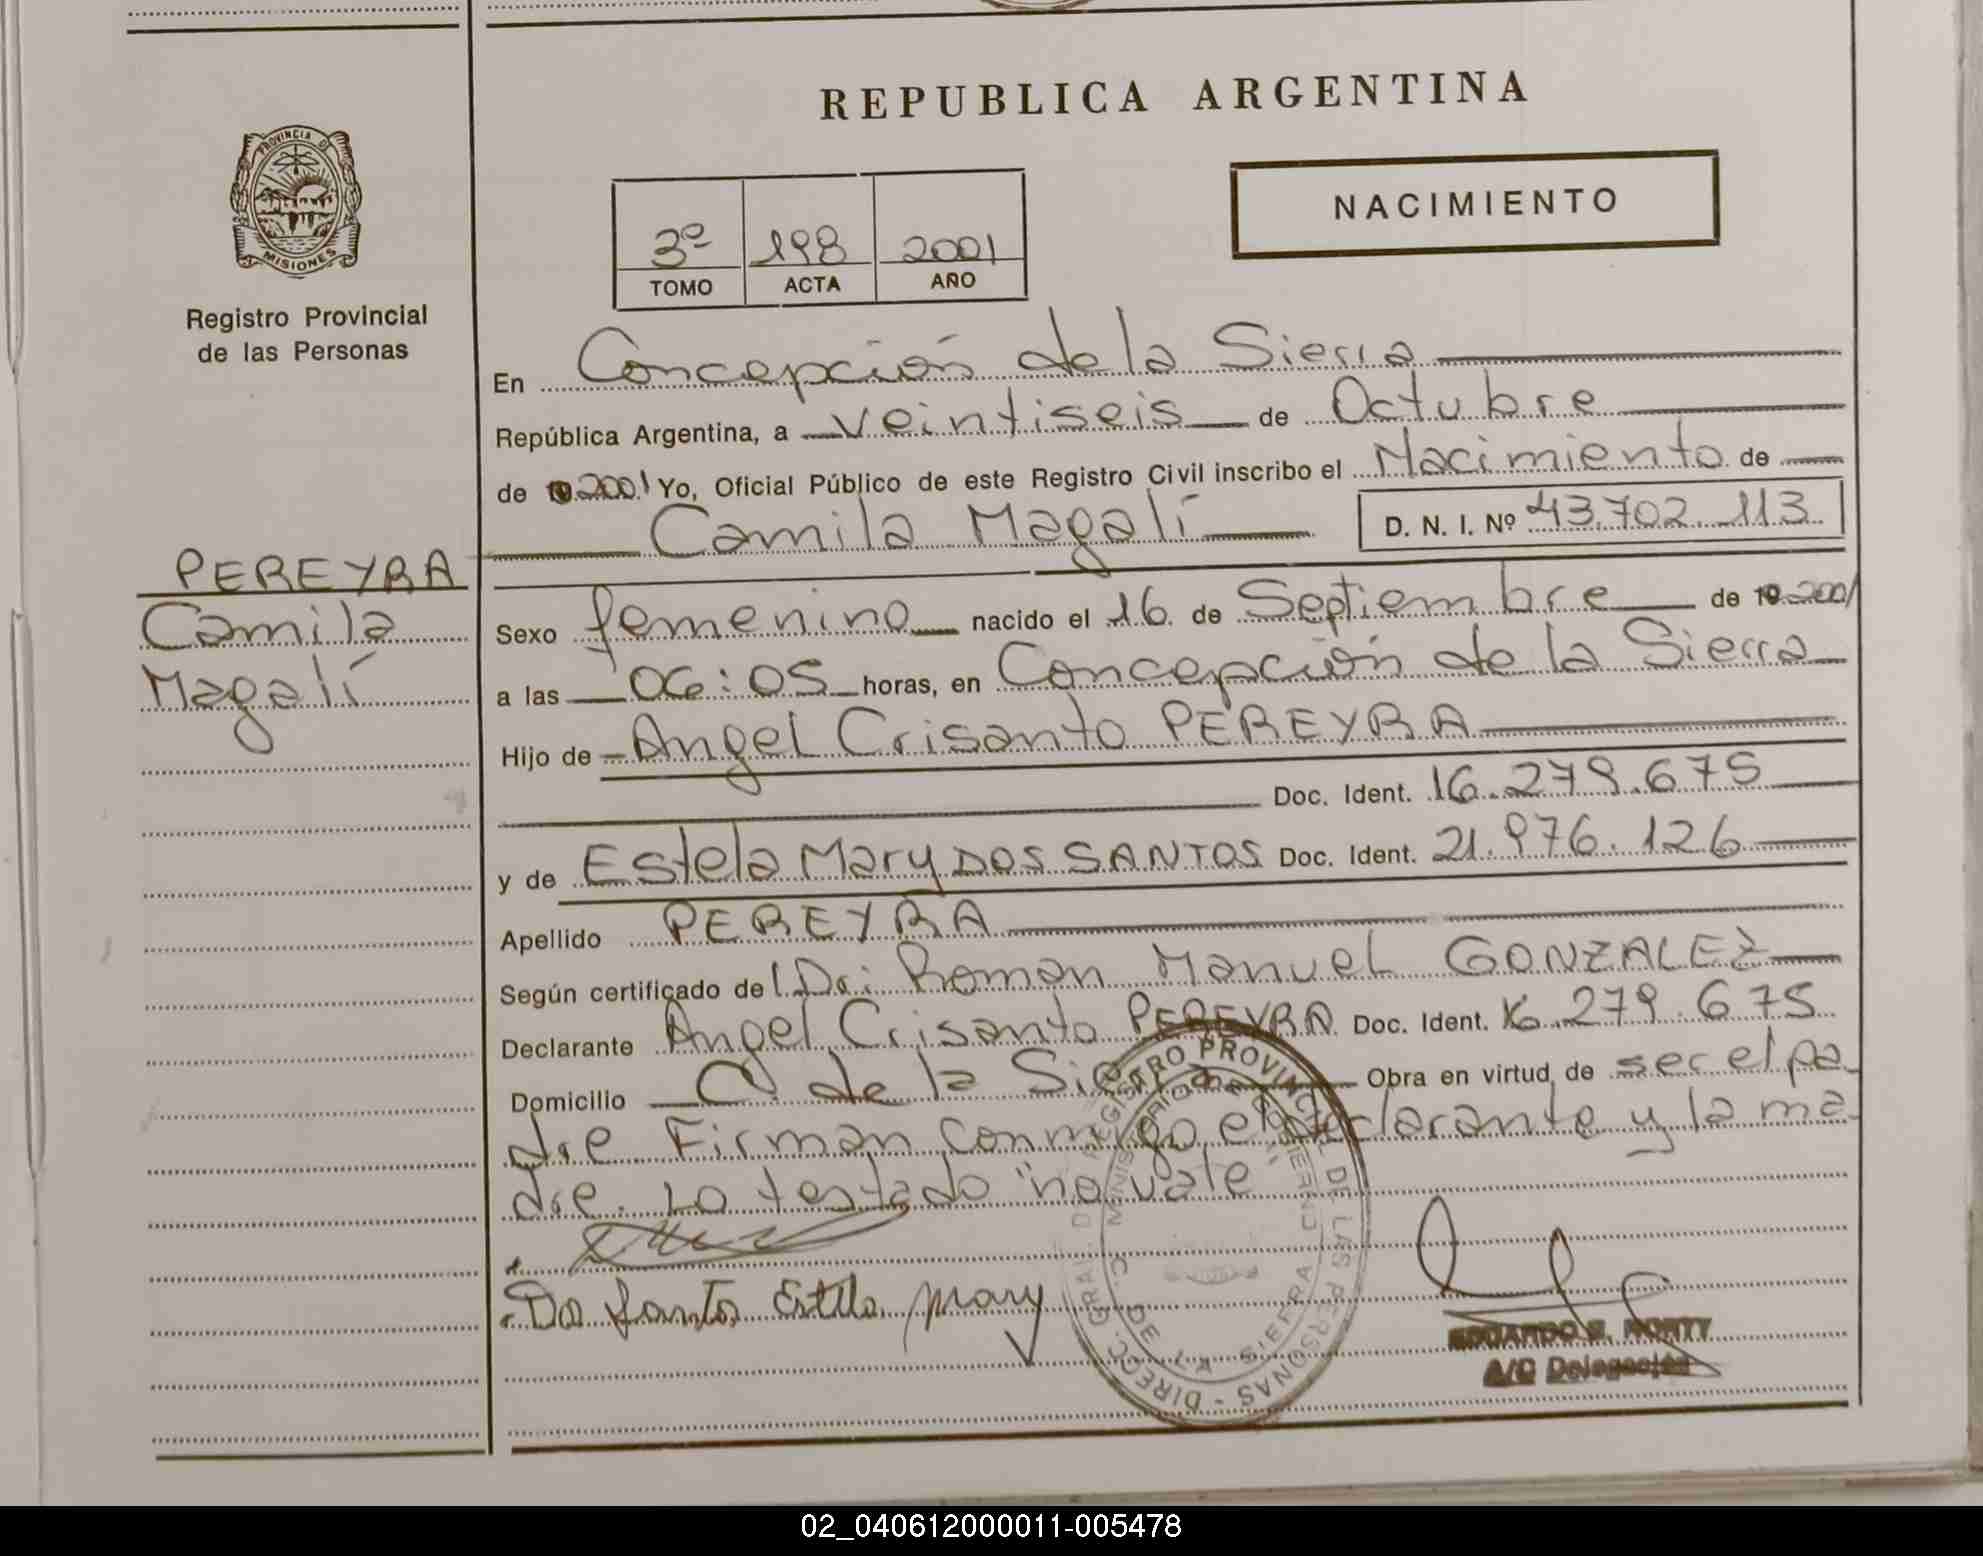 REPUBLICA ARGENTINA
PROVINCIA DE
MISIONES
Registro Provincial
de las Personas
NACIMIENTO
3º 198 2001
TOMO ACTA AÑO
En Concepción de la Sierra
República Argentina, a veintiseis de Octubre
de 2001 Yo, Oficial Público de este Registro Civil inscribo el Nacimiento de
Camila Magalí D. N. I. Nº 43.702.113
PEREYRA
Camila
Magalí
Sexo femenino nacido el 16 de Septiembre de 19 2001
a las 06:05 horas, en Concepción de la Sierra
Hijo de Angel Crisanto PEREYRA
Doc. Ident. 16.279.675
y de Estela Mary DOS SANTOS Doc. Ident. 21.976.126
Apellido PEREYRA
Según certificado del Dr: Roman Manuel GONZALEZ
Declarante Angel Crisanto PEREYRA Doc. Ident. 16.279.675
Domicilio C de la Sierra Obra en virtud de ser el pa
dre Firman conmigo el declarante y la ma
dre. Lo testado "no vale
Dos Santos Estela Mary
DIREC. GRAL. DEL REGISTRO PROVINCIAL DE LAS PERSONAS
EDUARDO E.
A/C Delegación
02_040612000011-005478